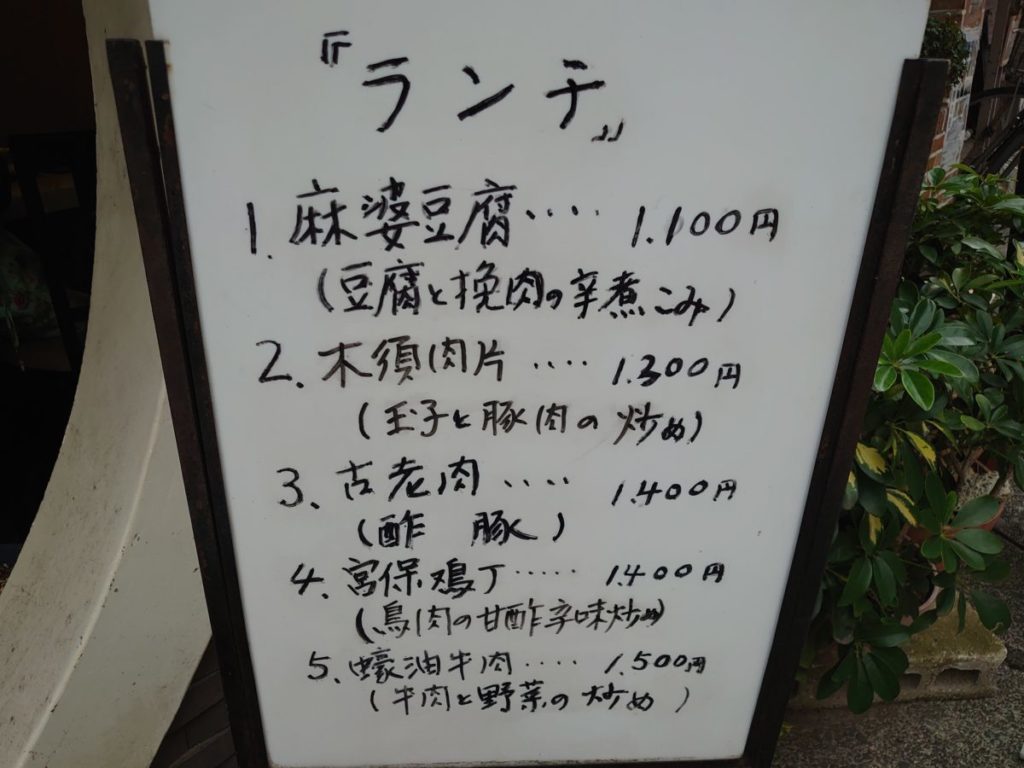 『ランチ』
1.麻婆豆腐････ 1.100円
(豆腐と挽肉の辛煮こみ)
2.木須肉片････ 1.300円
(玉子と豚肉の炒め)
3、古老肉････ 1.400円
(酢 豚)
4.宮保鶏丁･････ 1.400円
(鳥肉の甘酢辛味炒め)
5.蠔油牛肉････ 1.500円
(牛肉と野菜の炒め)